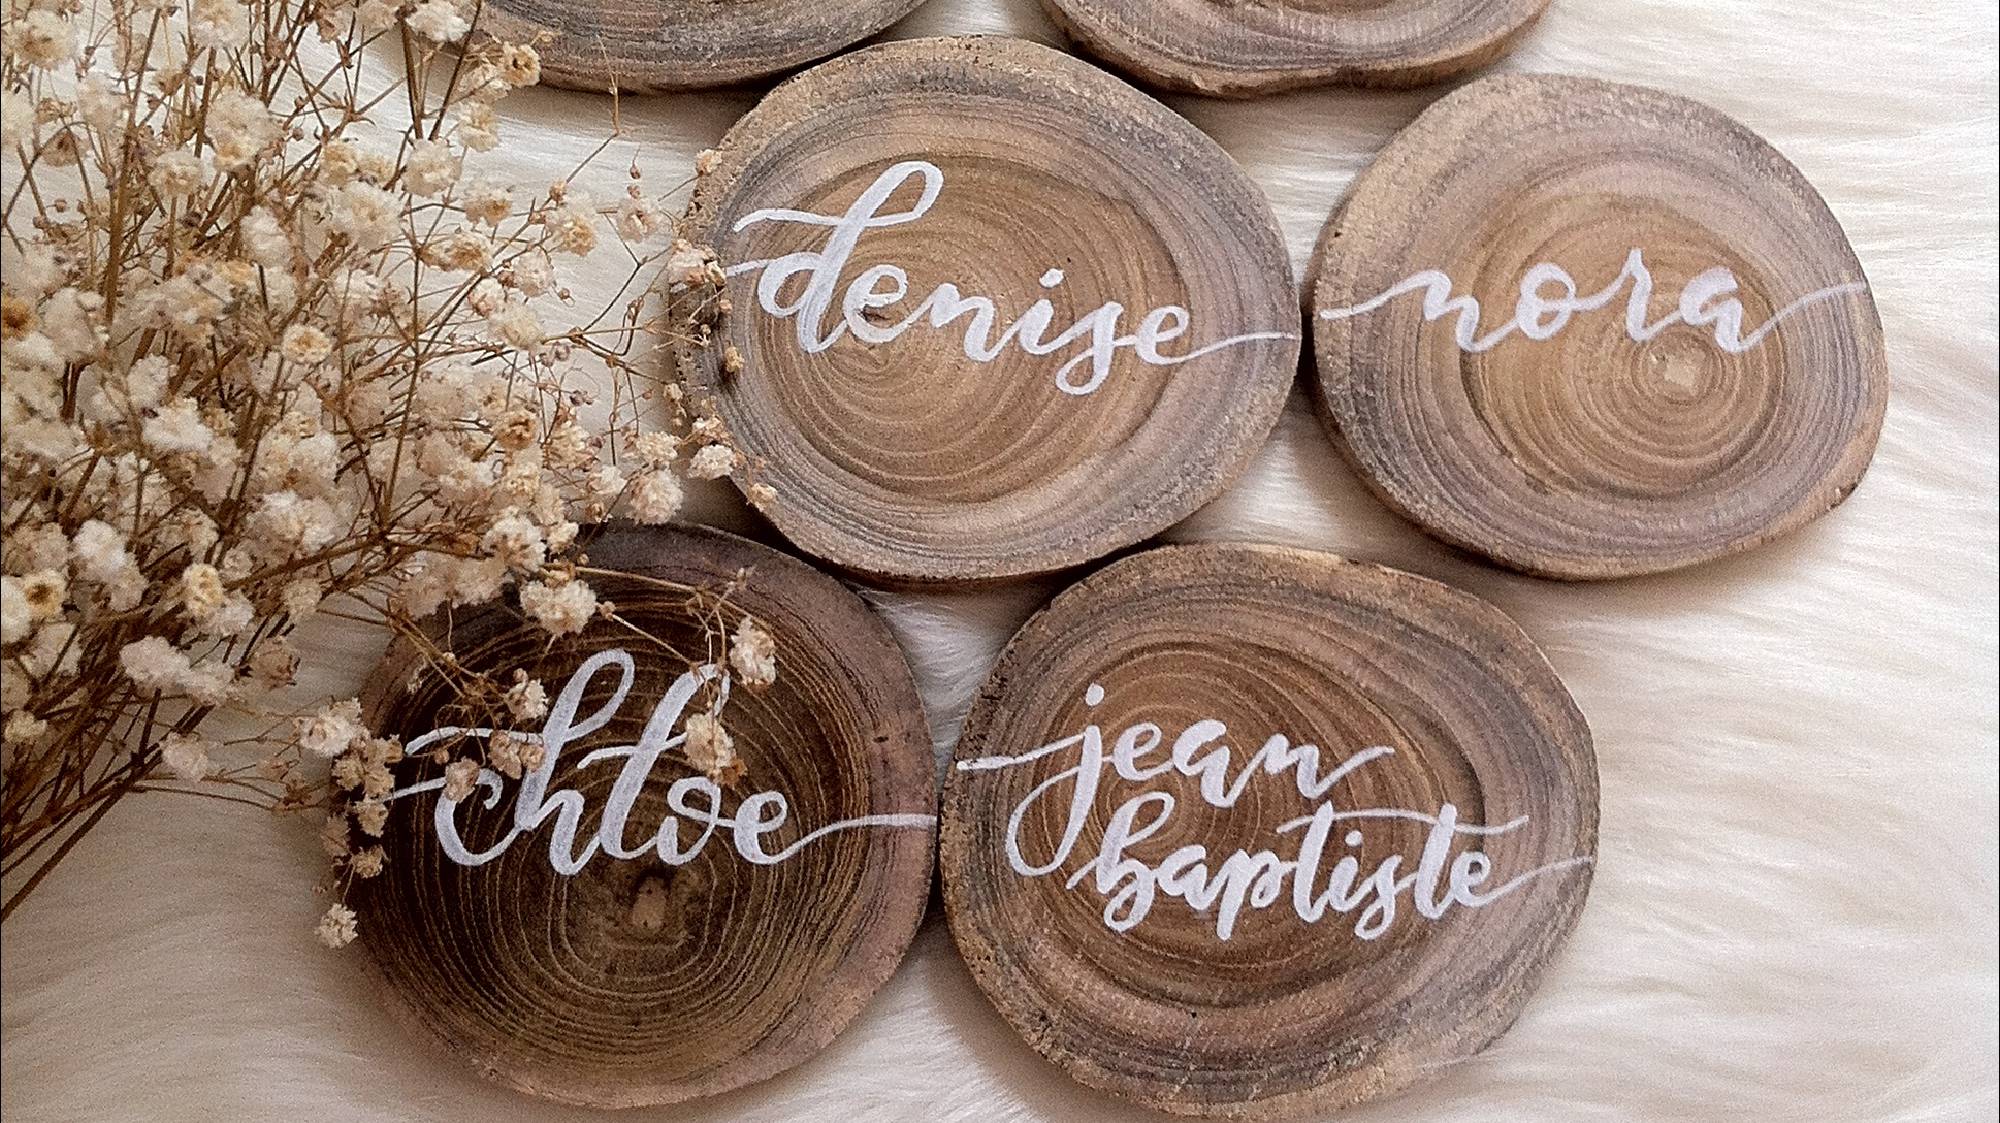 denise
nora
chloe
jean
baptiste